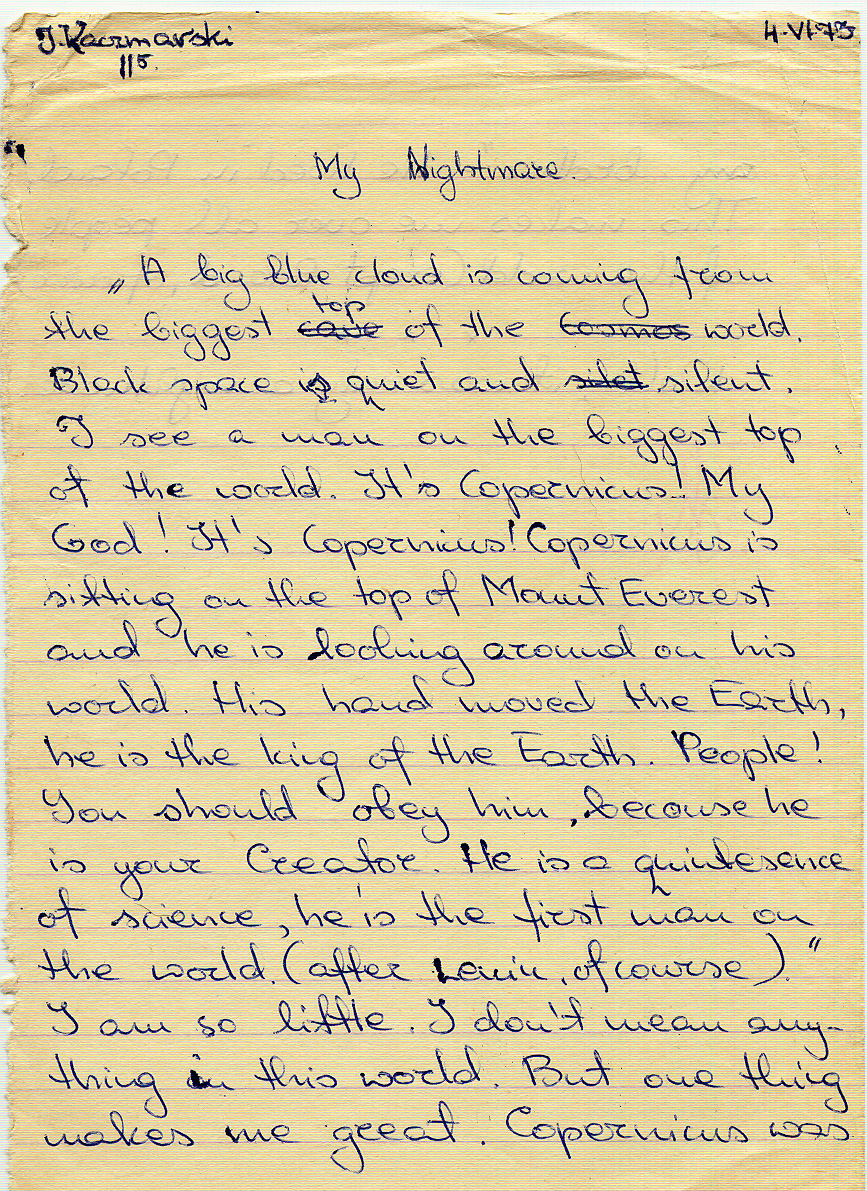 J.Kaczmarski 4-VI-73
My Nightmare.
„A big blue cloud is coming from
top
the biggest cave of the Cosmos world.
Black space is quiet and silet silent.
I see a man on the biggest top
of the world. It's Copernicus! My
God! It's Copernicus! Copernicus is
sitting on the top of Mount Everest
and he is looking around on his
world. His hand moved the Earth,
he is the king of the Earth. People!
You should obey him, because he
is your Creator. He is a quintesence
of science, he is the first man on
the world. (after Lenin, of course)."
I am so little. I don't mean any-
thing in this world. But one thing
makes me great. Copernicus was